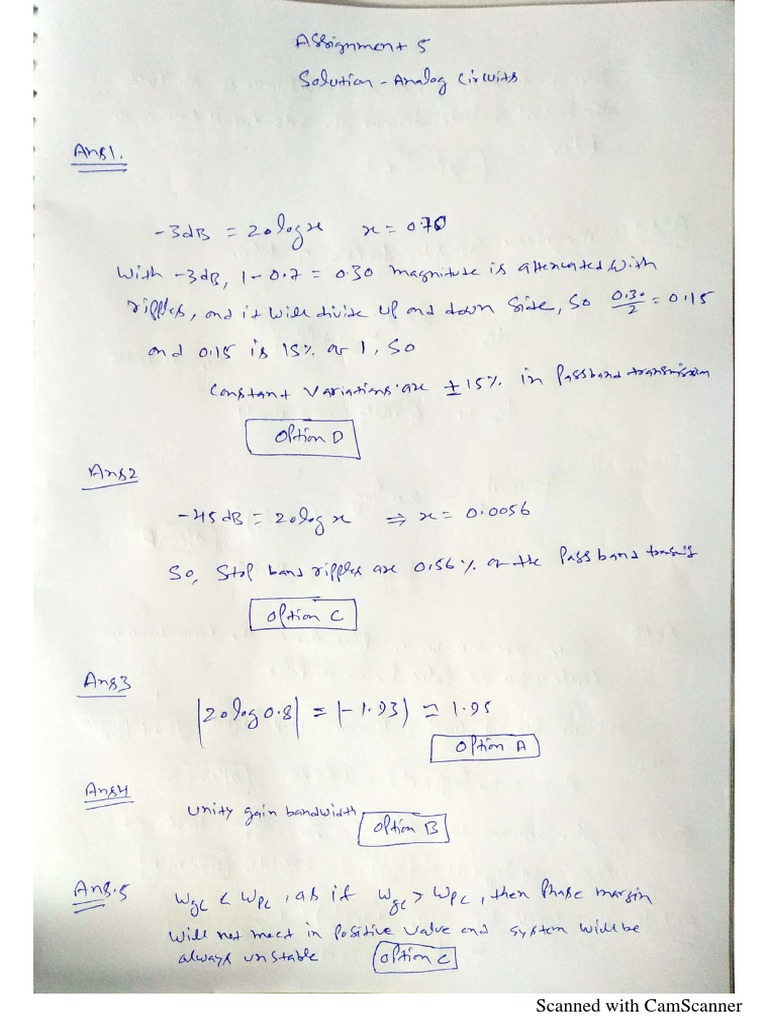 Assignment 5
Solution - Analog Circuits
Ans1.
-3dB = 20logx x = 0.70
With -3dB, 1-0.7 = 0.30 magnitude is attenuated with
ripples, and it will divide up and down side, so 0.30/2 = 0.15
and 0.15 is 15% of 1, so
Constant variations are ±15% in Passband transmission
Option D
Ans2
-45dB = 20logx ⇒ x = 0.0056
So, Stop band ripples are 0.56% of the Pass band transmis
Option C
Ans3
|20log0.8| = |-1.93| ≈ 1.95
Option A
Ans4
Unity gain bandwidth Option B
Ans.5 Wgc < Wpc, as if Wgc > Wpc, then Phase margin
will not meet in positive value and system will be
always unstable Option C
Scanned with CamScanner